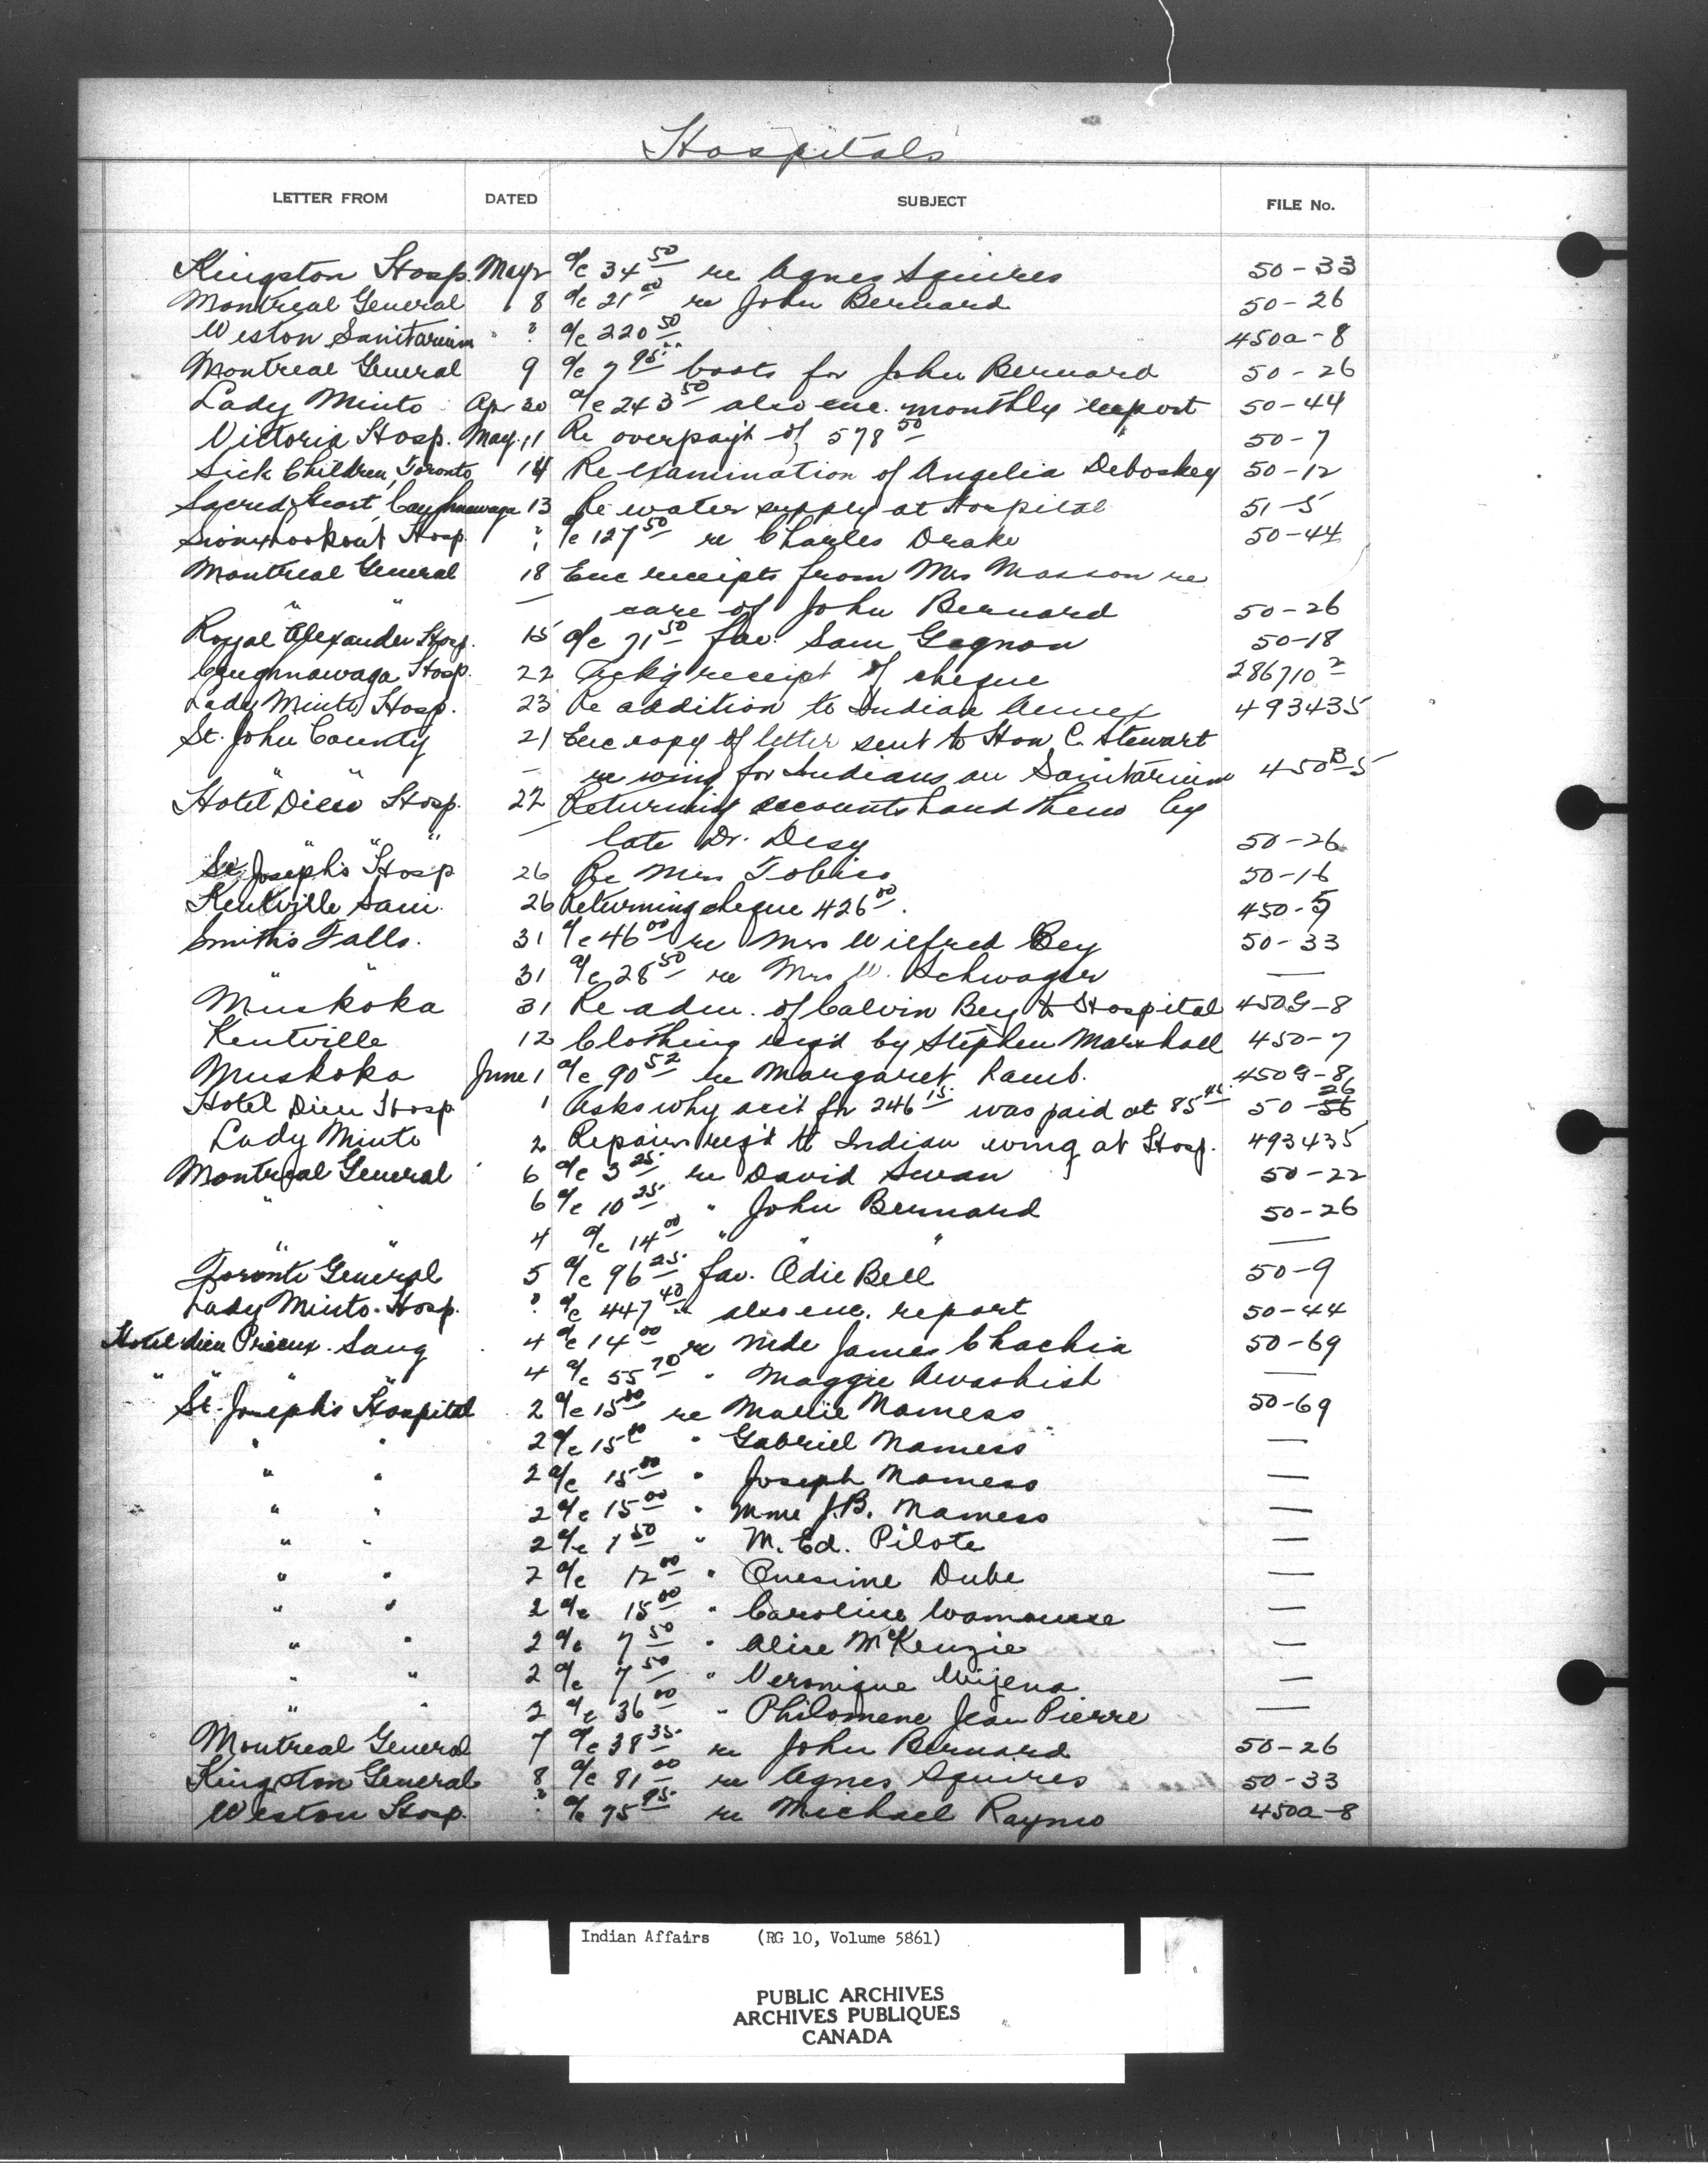 Hospitals
LETTER FROM DATED SUBJECT FILE No.
Kingston Hosp. May 2 a/c 34 50 re Agnes Squires 50-33
Montreal General 8 a/c 21 00 re John Bernard 50-26
Weston Sanitarium " ? a/c 220 50 450a-8
Montreal General 9 a/c 7 95 boots for John Bernard 50-26
Lady Minto Apr 30 a/c 243 50 also enc. monthly report 50-44
Victoria Hosp. May 11 Re overpay't of 578 50 50-7
Sick Children, Toronto 14 Re examination of Angelia Deboskey 50-12
Sacred Heart, Caughnawaga 13 Re water supply at Hospital 51-5
Sioux Lookout Hosp. ? a/c 127 50 re Charles Drake 50-44
Montreal General 18 Enc receipts from Mrs Masson re
" " — care of John Bernard 50-26
Royal Alexander Hosp. 15 a/c 71 50 fav. Sam Gagnon 50-18
Caughnawaga Hosp. 22 Ackg receipt of cheque 286710 2
Lady Minto Hosp. 23 Re addition to Indian Annex 493435
St. John County 21 Enc copy of letter sent to Hon C. Stewart
" " — re wing for Indians on Sanitarium 450B-5
Hotel Dieu Hosp. 22 Returning accounts hand them by
" " — late Dr. Desy 50-26
St. Joseph's Hosp 26 Re Mrs Tobias 50-16
Kentville San. 26 Returning cheque 426 00. 450-5
Smith's Falls. 31 a/c 46 00 re Mrs Wilfred Bey 50-33
" " 31 a/c 28 50 re Mrs W. Schwager —
Muskoka 31 Re adm. of Calvin Bey to Hospital 450G-8
Kentville 12 Clothing req'd by Stephen Marshall 450-7
Muskoka June 1 a/c 90 52 re Margaret Lamb. 450G-8
Hotel Dieu Hosp 1 Asks why acc't for 246 15 was paid at 85 45 50-56 26
Lady Minto 2 Repairs req'd to Indian wing at Hosp. 493435
Montreal General 6 a/c 3 25 re David Swan 50-22
" " 6 a/c 10 25 " John Bernard 50-26
" " 4 a/c 14 00 " " " —
Toronto General 5 a/c 96 25 fav. Odie Bell 50-9
Lady Minto Hosp. ? a/c 447 40 also enc. report 50-44
Hotel dieu Precux. Sang 4 a/c 14 00 re Mde James Chachia 50-69
" " " 4 a/c 55 70 " Maggie Awashish —
St. Joseph's Hospital 2 a/c 15 00 re Marie Namess 50-69
" " 2 a/c 15 00 " Gabriel Namess —
" " 2 a/c 15 00 " Joseph Namess —
" " 2 a/c 15 00 " Mme J.B. Namess —
" " 2 a/c 1 50 " M. Ed. Pilote —
" " 2 a/c 12 00 " Onesime Dube —
" " 2 a/c 15 00 " Caroline —
" " 2 a/c 7 50 " Alice McKenzie —
" " 2 a/c 7 50 " Veronique —
" " 2 a/c 36 00 " Philomene Jean Pierre —
Montreal General 7 a/c 38 35 re John Bernard 50-26
Kingston General 8 a/c 81 00 re Agnes Squires 50-33
Weston Hosp. ? a/c 75 95 re Michael Raymo 450a-8
Indian Affairs (RG 10, Volume 5861)
PUBLIC ARCHIVES
ARCHIVES PUBLIQUES
CANADA